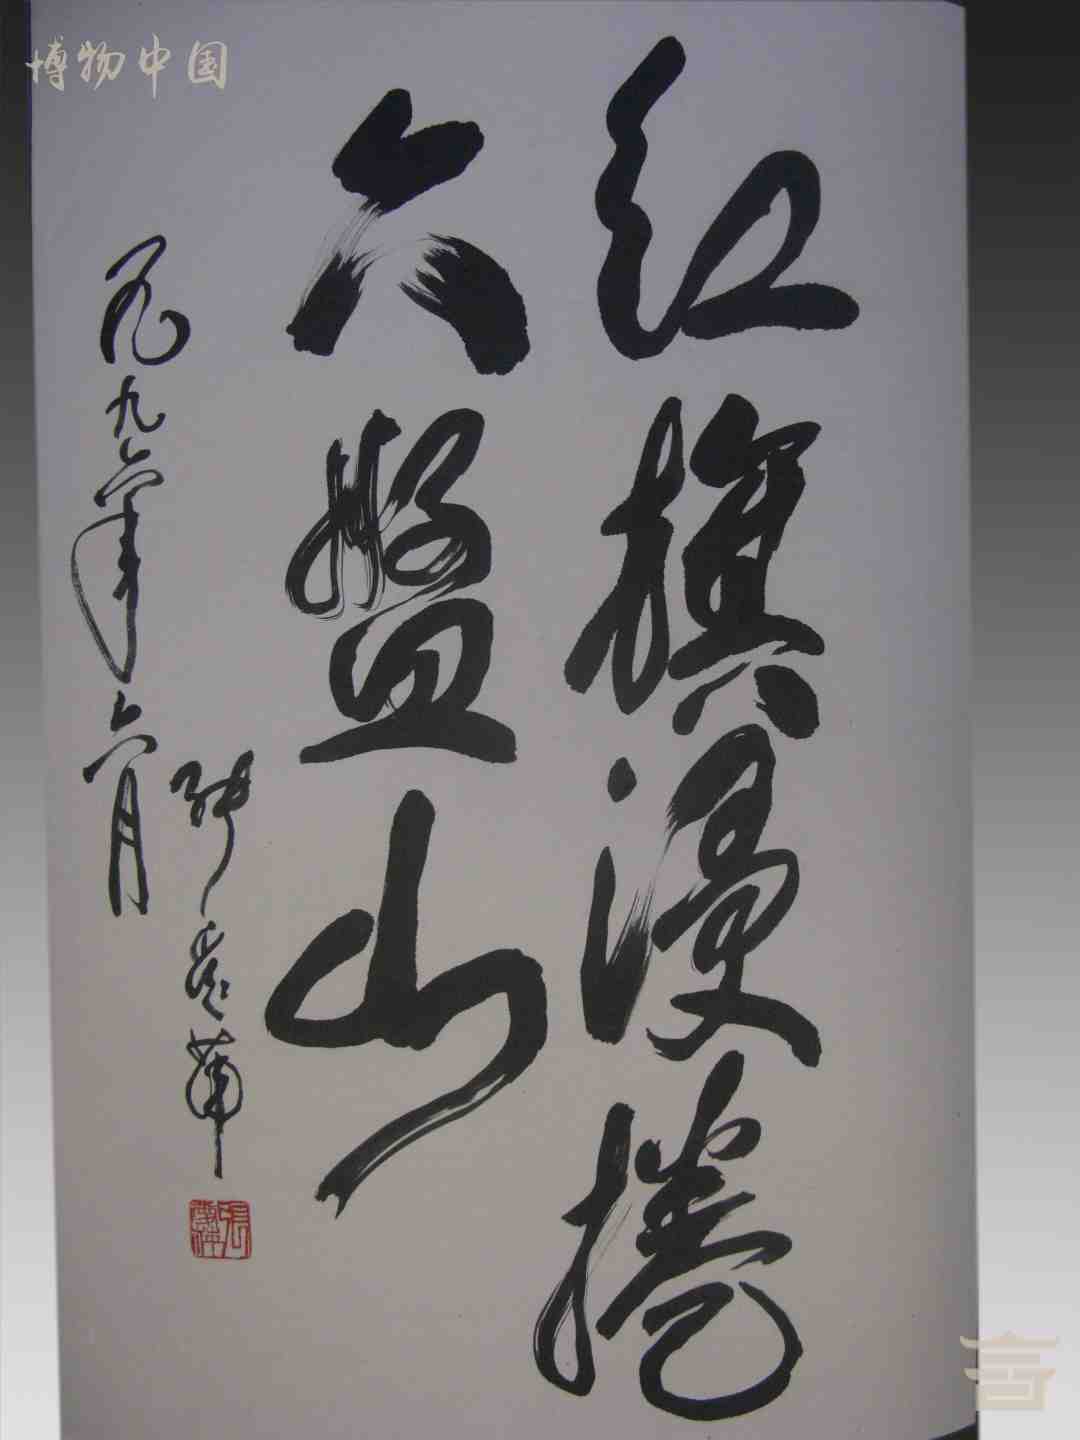 博物中国
红旗漫捲
六盘山
一九九六年六月
张爱萍